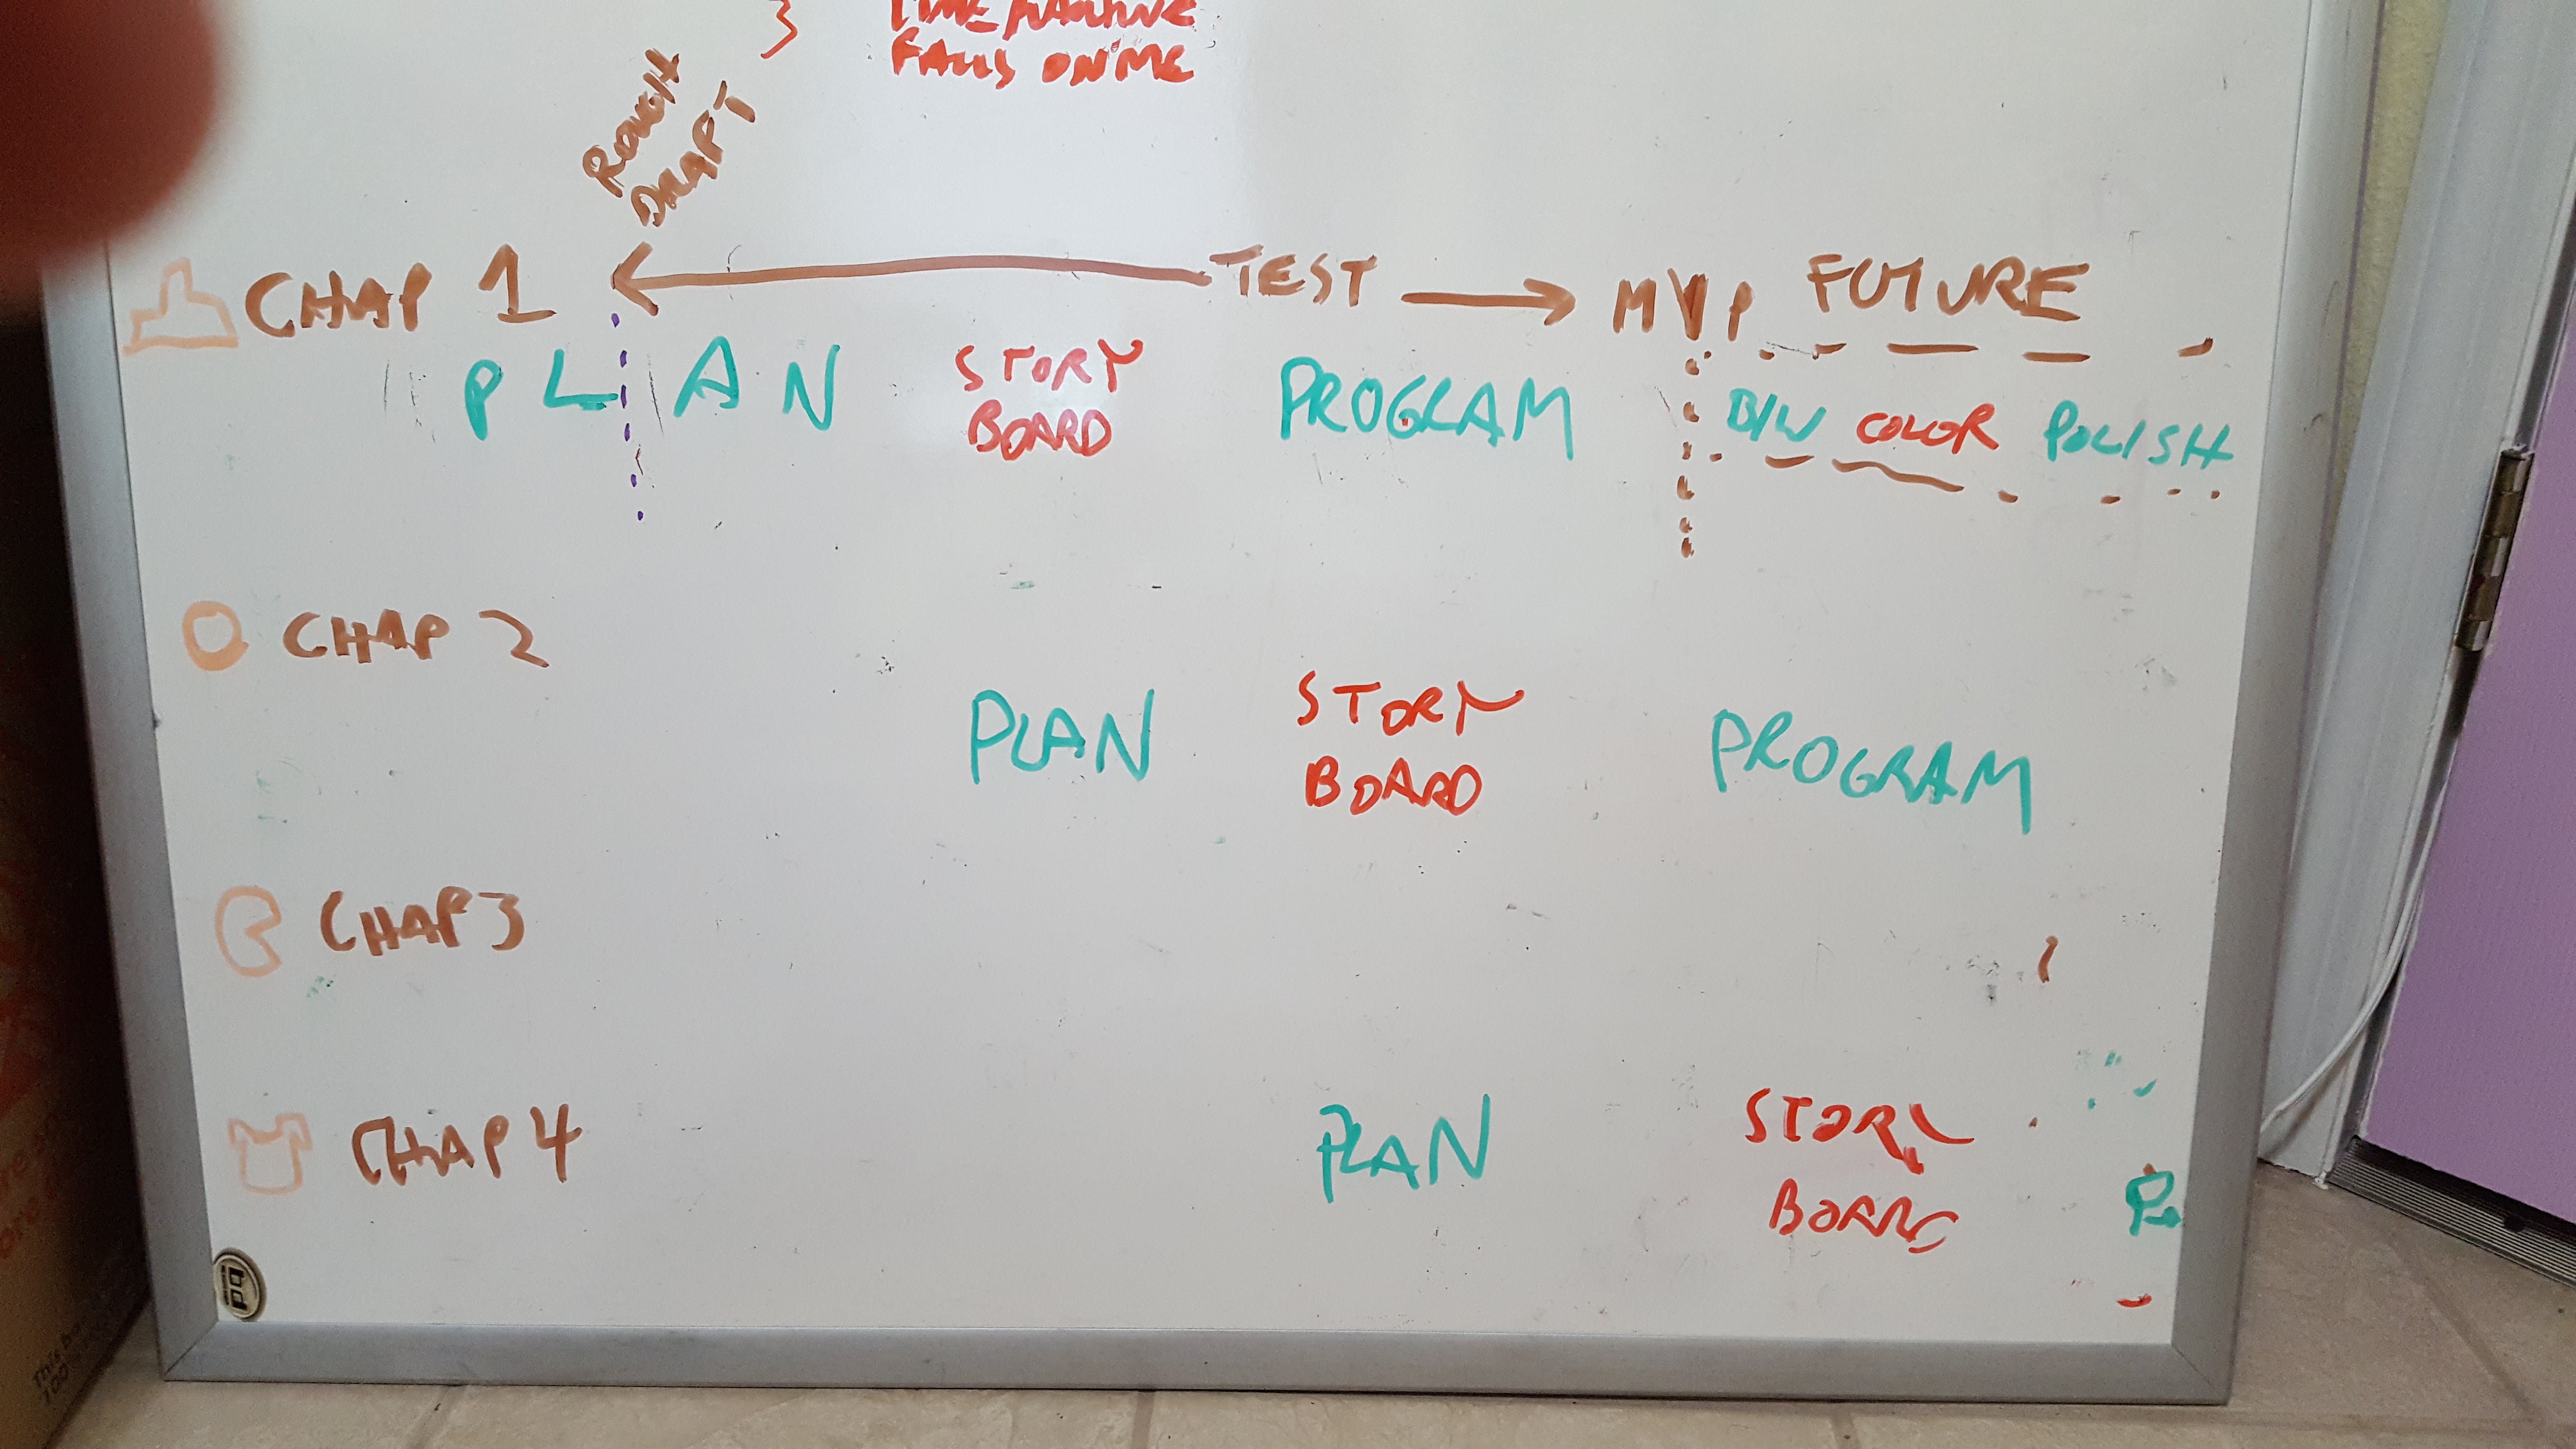 TIME MACHINE
FALLS ON ME
ROUGH
DRAFT
CHAP 1
TEST
MVP
FUTURE
PLAN
STORY
BOARD
PROGRAM
B/W
COLOR
POLISH
CHAP 2
PLAN
STORY
BOARD
PROGRAM
CHAP 3
CHAP 4
PLAN
STORY
BOARD